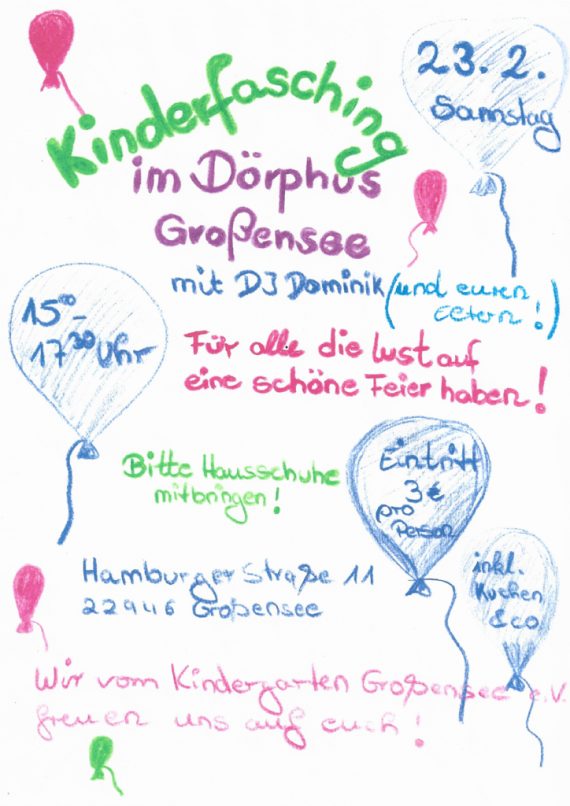 Kinderfasching
23.2.
Samstag
im Dörphus
Großensee
mit DJ Dominik (und euren
Eltern!)
15⁰⁰-
17³⁰ Uhr
Für alle die lust auf
eine schöne Feier haben!
Bitte Hausschuhe
mitbringen!
Eintritt
3 €
pro
Person
inkl.
Kuchen
& co
Hamburger Straße 11
22946 Großensee
Wir vom Kindergarten Großensee e.V.
freuen uns auf euch!